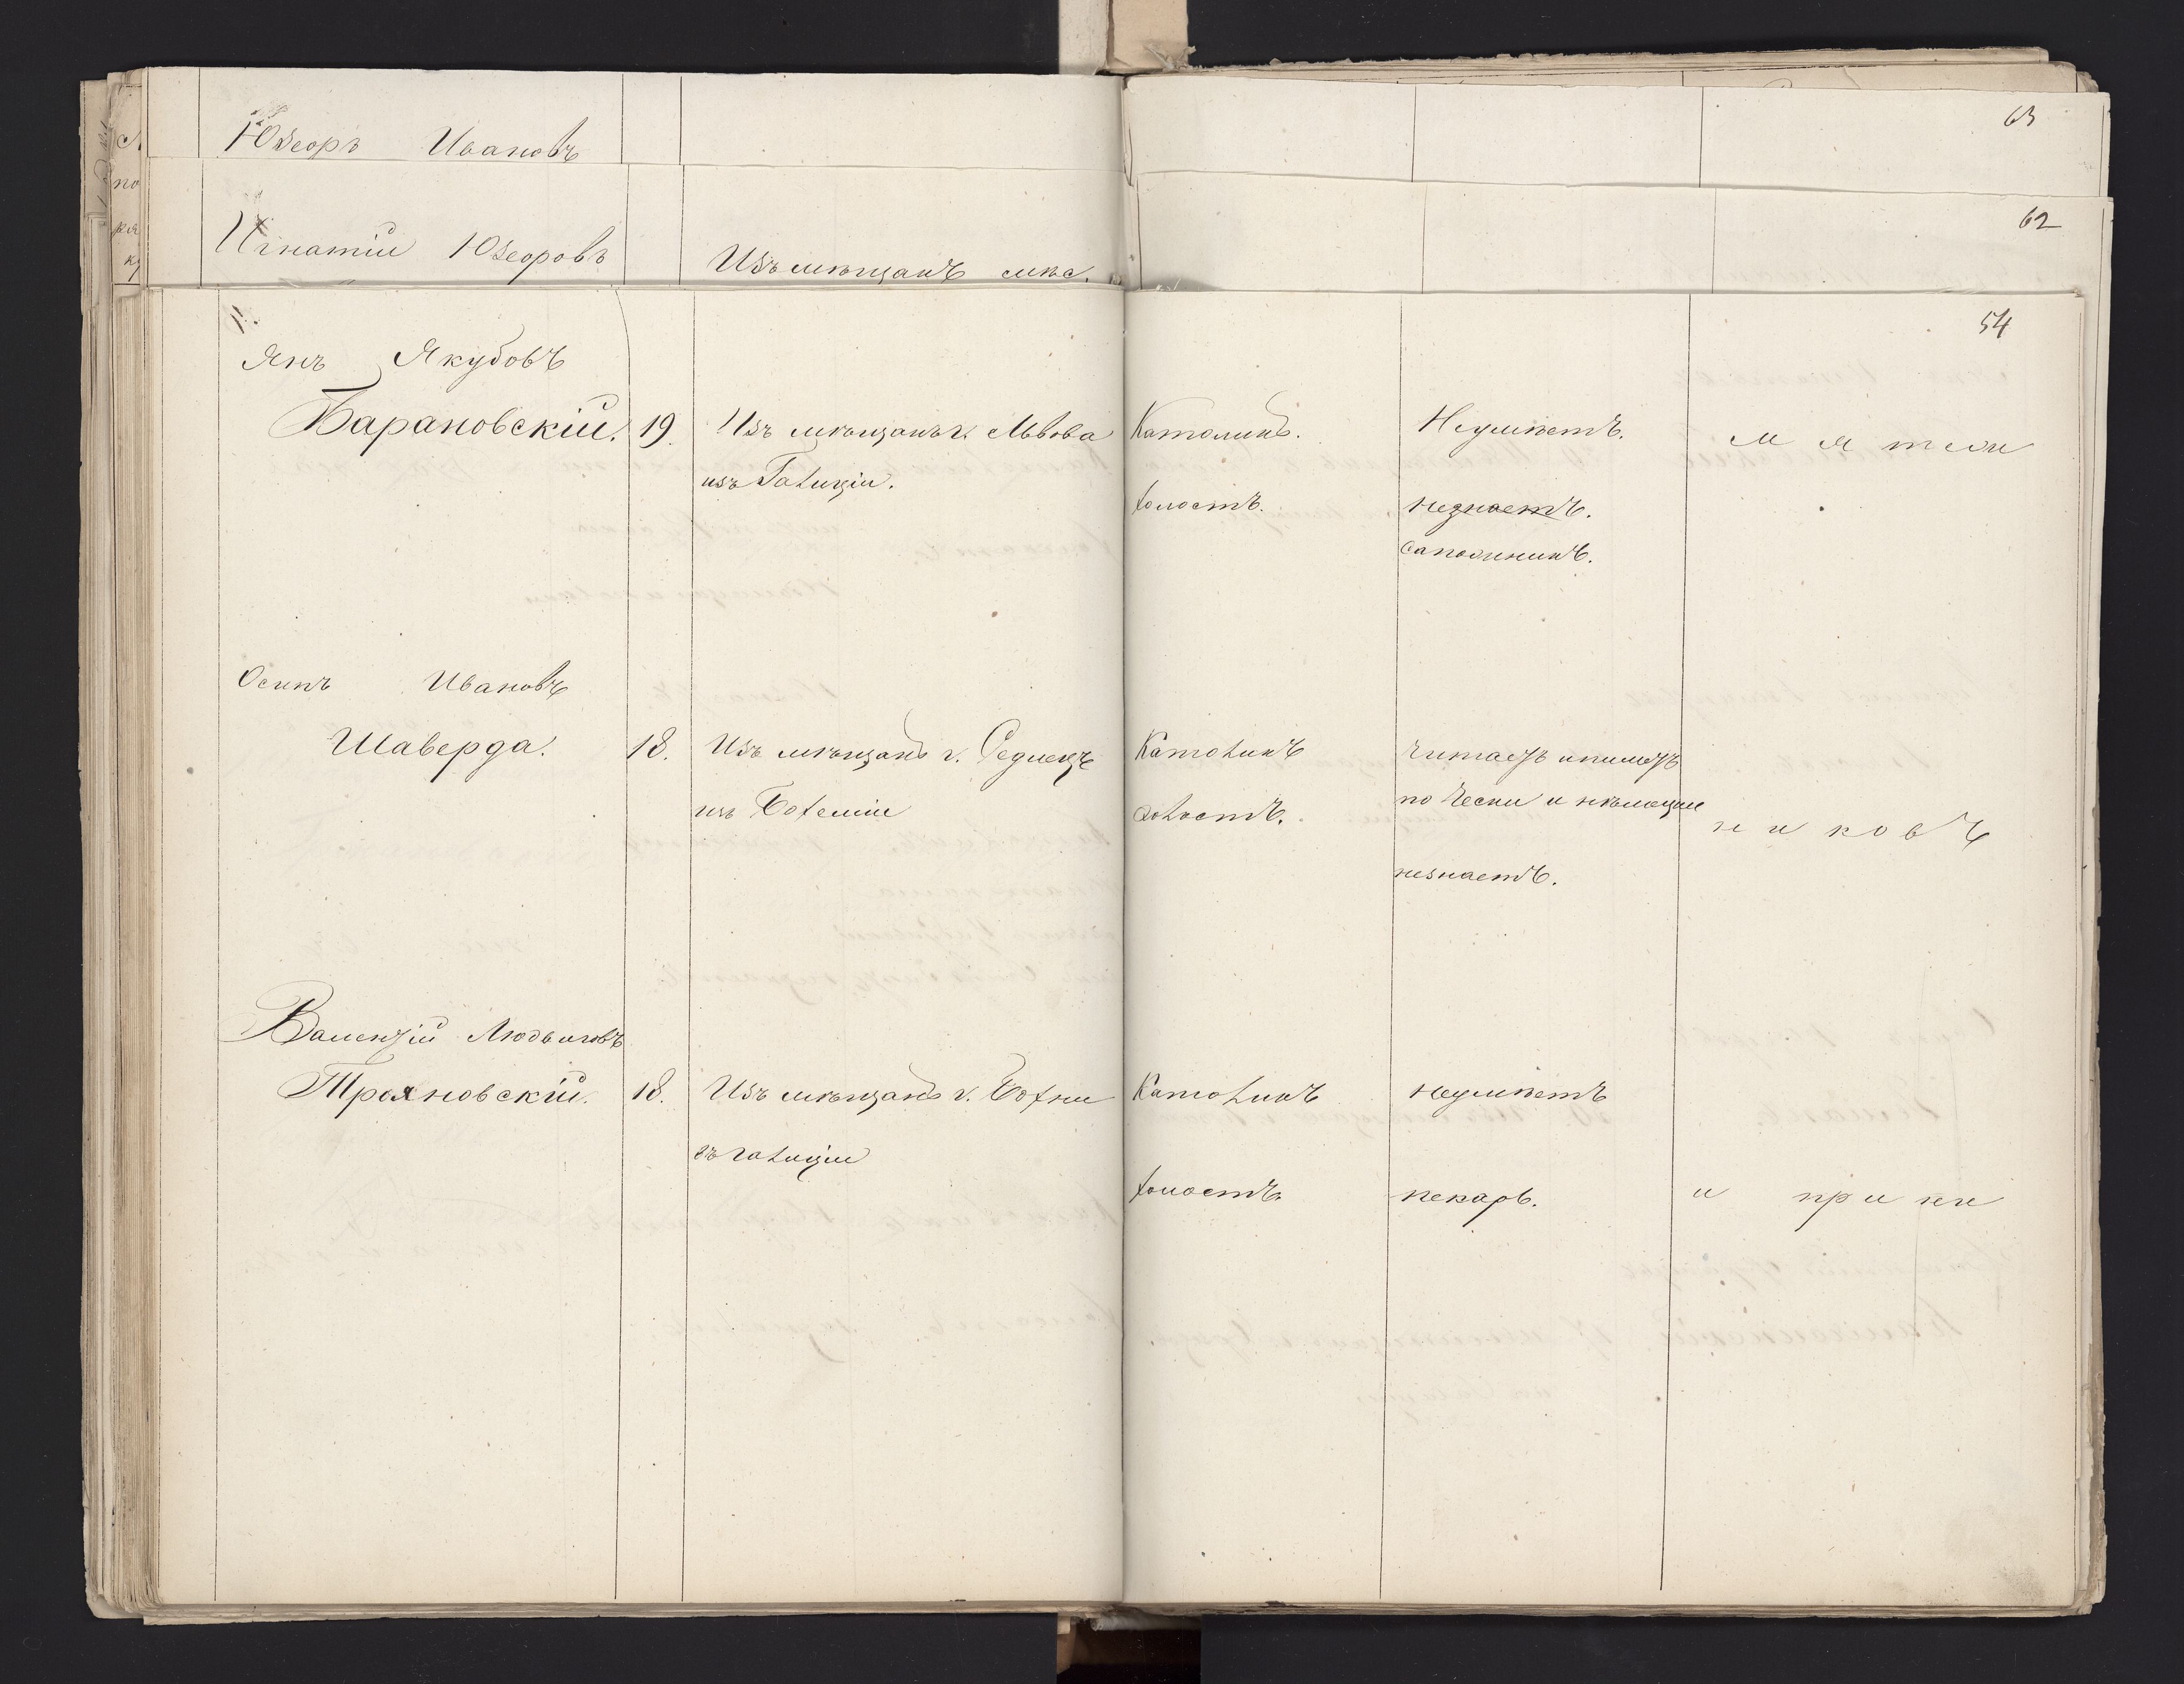 63
Юзефъ Ивановъ
62
Игнатій Юзефовъ
Изъ мѣщанъ мѣс.
54
Янъ Якубовъ
Барановскій. 19. Изъ мѣщанъ г. Львова Католикъ. Неумѣетъ. м я т е ж
изъ Галиціи.
холостъ. незнаетъ.
сапожникъ.
Осипъ Ивановъ
Шаверда. 18. Изъ мѣщанъ г. Седлецъ Католикъ читаетъ и пишетъ
изъ Богеміи холостъ. по чески и нѣмецки н и к о в ъ
незнаетъ.
Валентій Людвиговъ
Трояновскій. 18. Изъ мѣщанъ г. Бохни Католикъ неумѣетъ
въ Галиціи
холостъ пекарь. и п р и н и